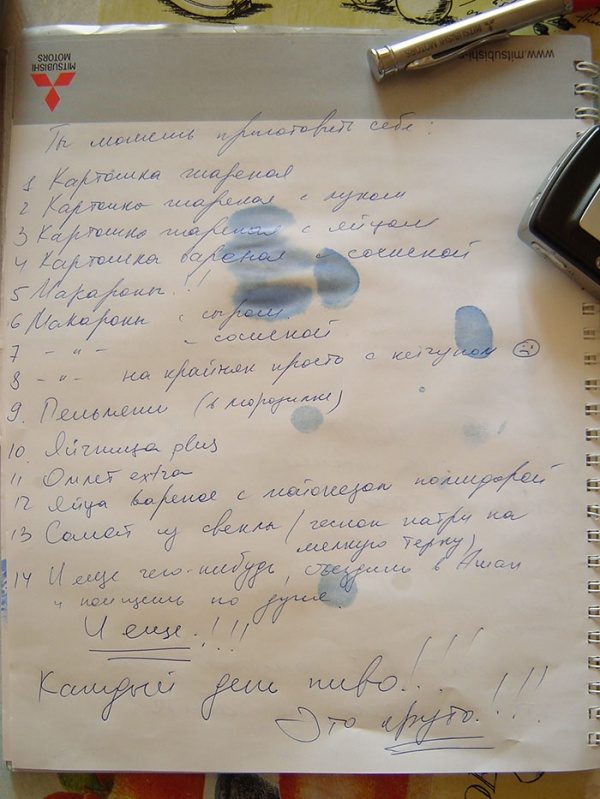 MITSUBISHI
MOTORS
www.mitsubishi-
MITSUBISHI MOTORS
Ты можешь приготовить себе:
1 Картошка жареная
2 Картошка жареная с луком
3 Картошка жареная с яйцом
4 Картошка вареная с сосиской
5 Макароны!!
6 Макароны с сыром
7 - " - с сосиской
8 - " - на крайняк просто с кетчупом ☹
9. Пельмени (в морозилке)
10. Яичница plus
11 Омлет extra
12 Яйца вареное с майонезом помидорой
13 Самат из свеклы (чеснок натри на
мелкую терку)
14 И еще чего-нибудь, съездишь в Ашан
и поищешь по душе.
И еще!!!!
Каждый день пиво!...!!!
Это круто!!!!